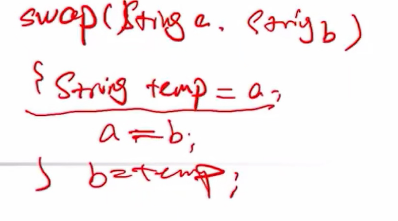 swap(String a, String b)
{ String temp = a;
a = b;
} b=temp;